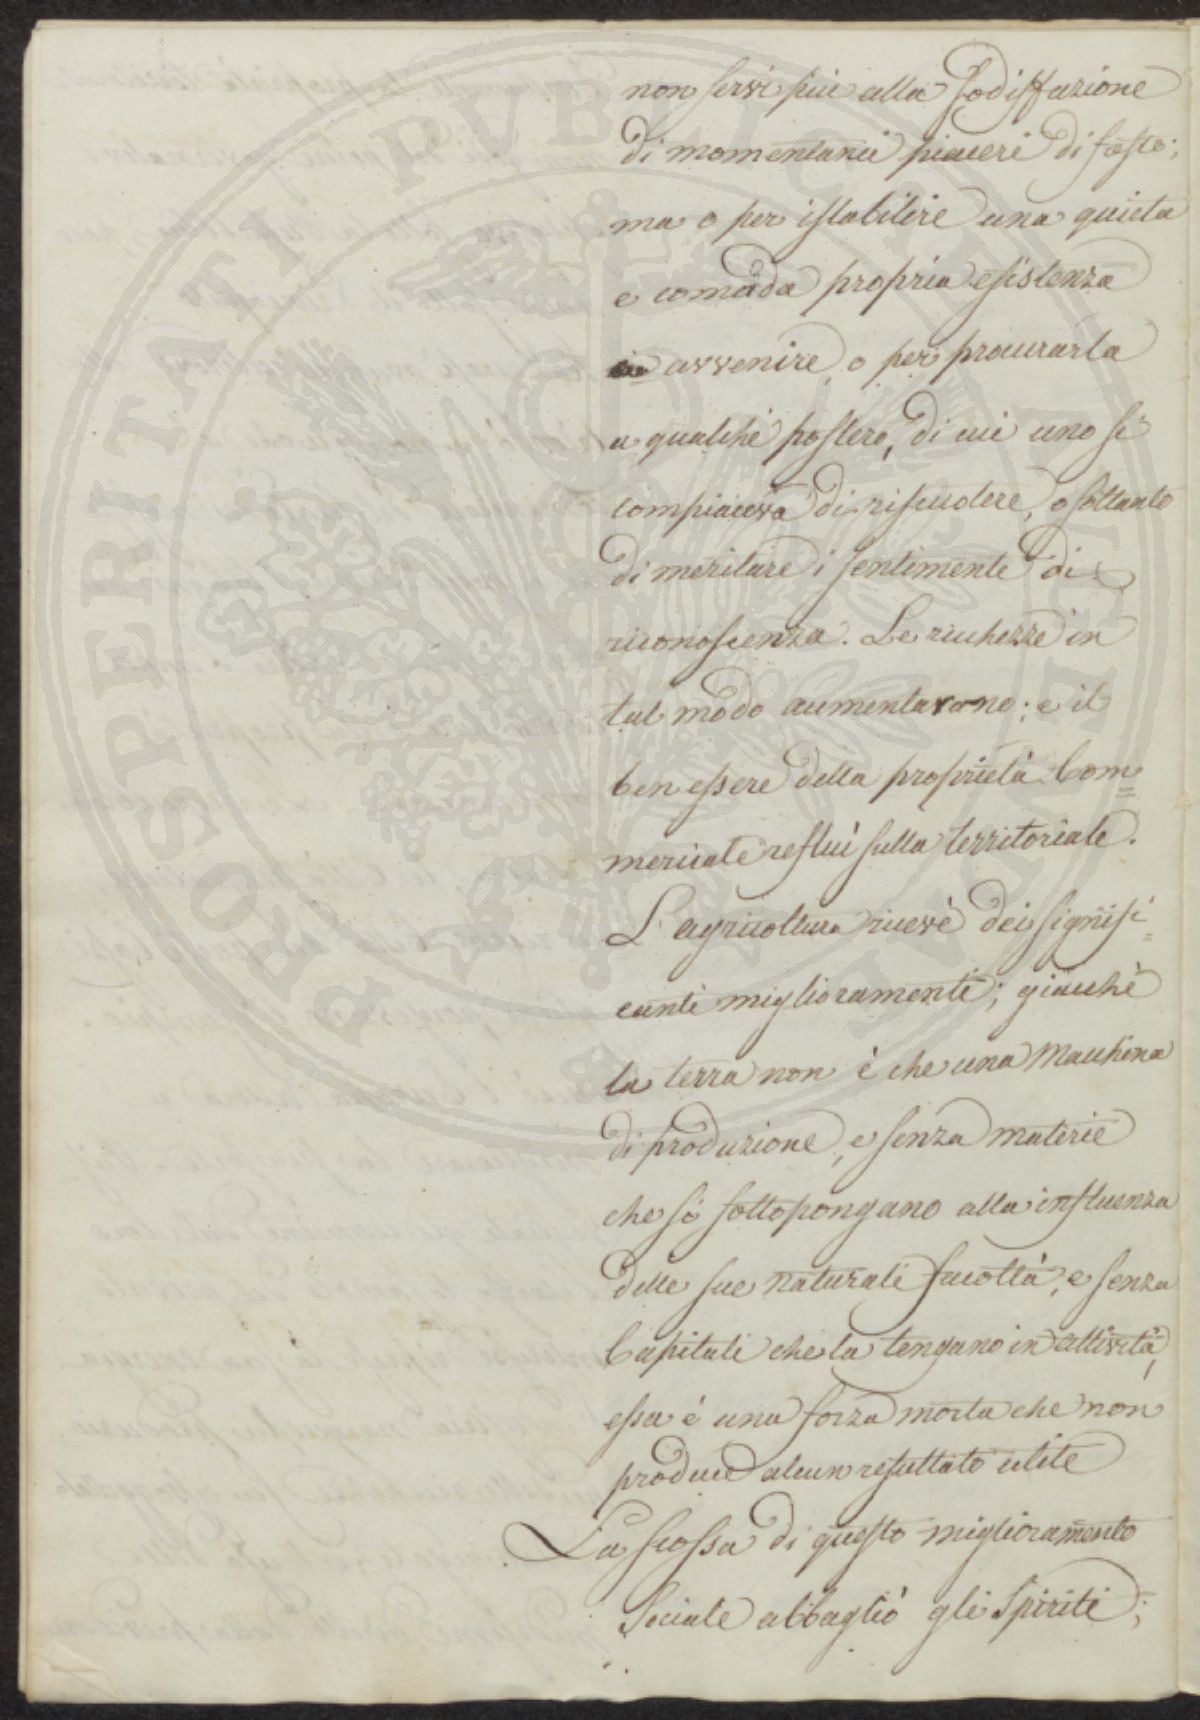 non servì più alla sodisfazione
di momentanei piaceri di fasto;
ma o per istabilire una quieta
e comoda propria esistenza
in avvenire, o per procurarla
a qualche postero, di cui uno si
compiaceva di riscuotere, o soltanto
di meritare i sentimente di
riconoscenza. Le ricchezze in
tal modo aumentarono; e il
ben essere della proprietà Com=
merciale refluì sulla territoriale.
L'agricoltura ricevè dei signifi=
canti miglioramenti; giacchè
la terra non è che una Macchina
di produzione, e senza materie
che si sottopongano alla influenza
delle sue naturali facoltà, e senza
Capitali che la tengano in attività,
essa è una forza morta che non
produce alcun resultato utile
La scossa di questo miglioramento
Sociale abbagliò gli Spiriti;
PROSPERITATI PUBLICAE AUGENDAE